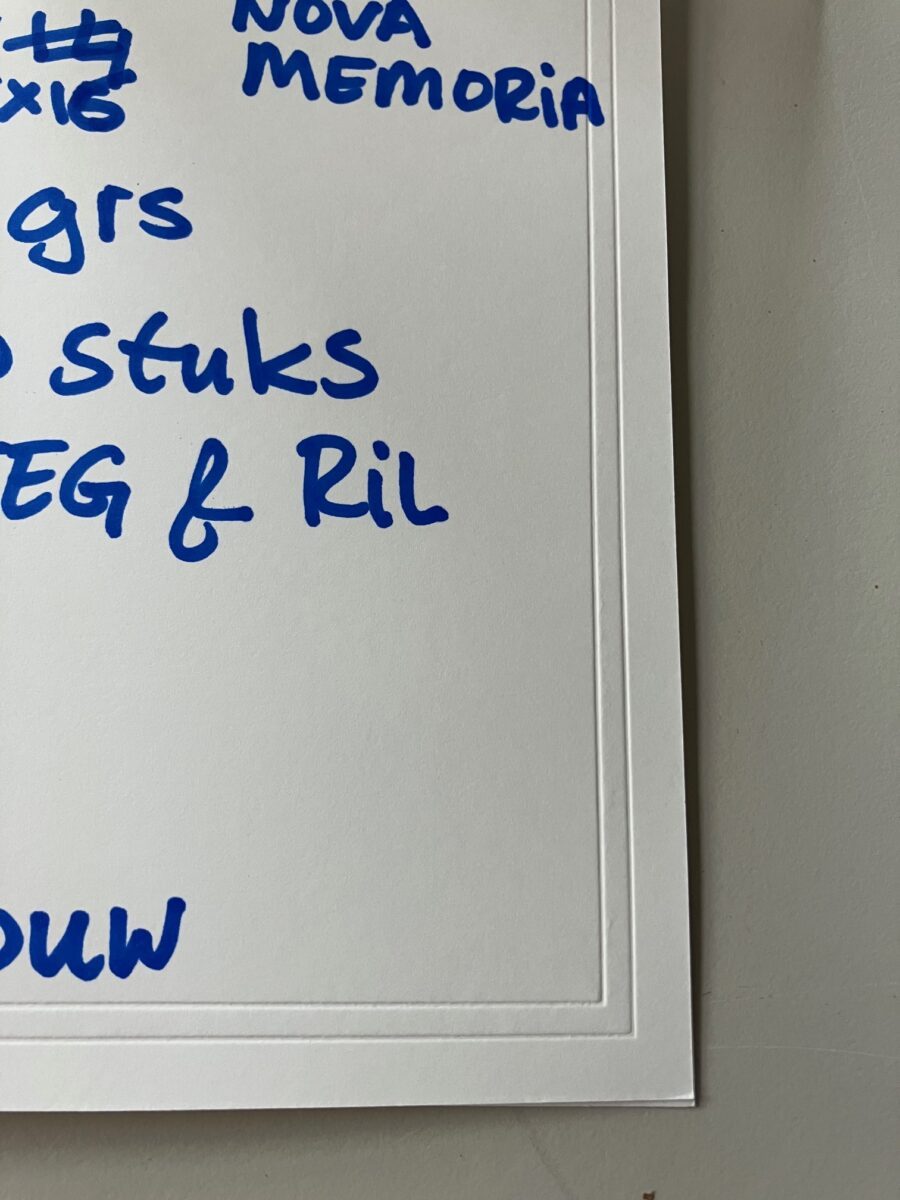 NOVA
MEMORiA
x15
grs
stuks
EG & RiL
OUW